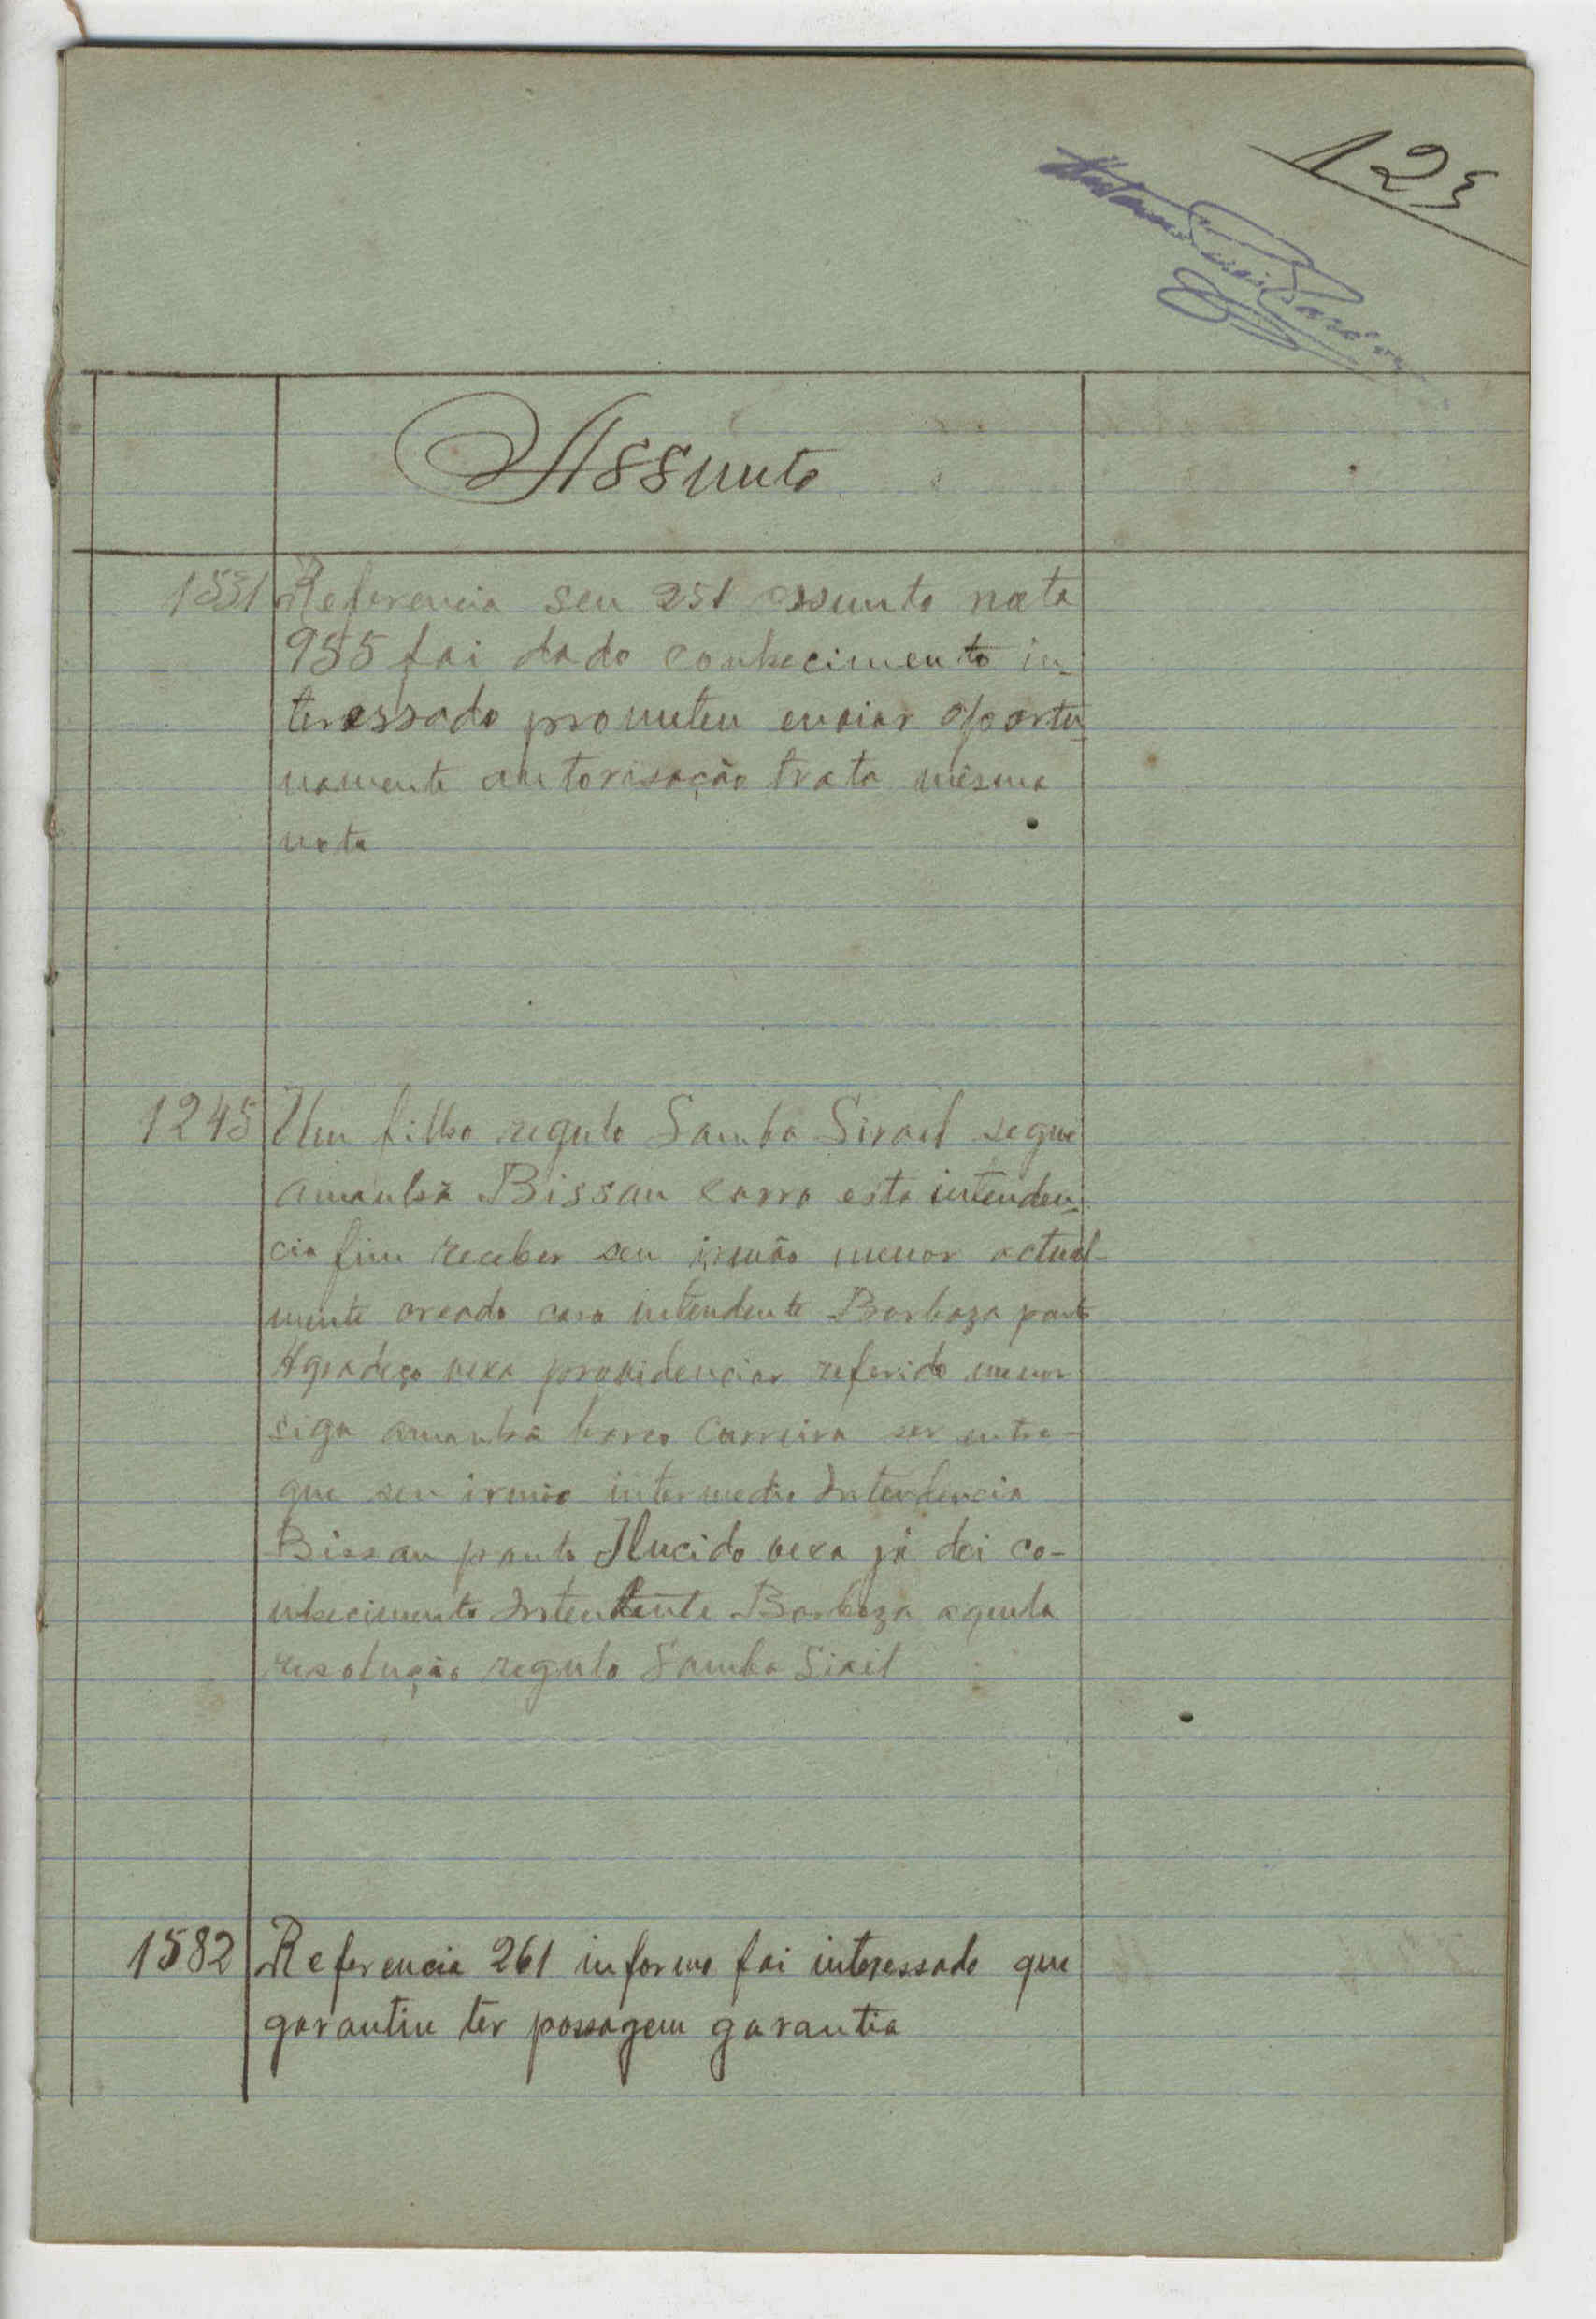 123
Assunto
1531 Referencia seu 251 assunto nota
955 foi dado conhecimento in-
teressado prometeu enviar oportu-
namente autorisação trata mesma
nota
1245 Um filho regulo Samba Sirael segue
amanhã Bissau carro esta intenden-
cia fim receber seu irmão menor actual-
mente creado casa intendente Barboza ponto
Agradeço vexa providenciar referido menor
siga amanhã barco Carreira ser entre-
gue seu irmão intermedio Intendencia
Bissau ponto Ilucido vexa já dei co-
nhecimento Intendente Barboza aquela
resolução regulo Samba
1582 Referencia 261 informo foi interessado que
garantiu ter passagem garantia